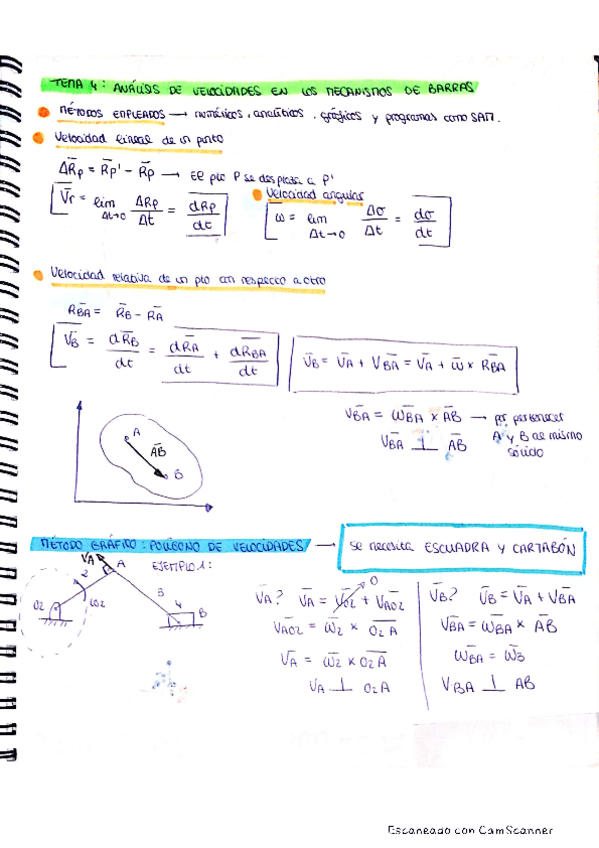 TEMA 4: ANÁLISIS DE VELOCIDADES EN LOS MECANISMOS DE BARRAS
MÉTODOS EMPLEADOS → numéricos, analíticos, gráficos y programas como SAM.
Velocidad lineal de un punto
ΔR̄p = R̄p' - R̄p → El pto P se desplaza a P'
V̄r = lim Δt→0 ΔR̄p/Δt = dR̄p/dt
Velocidad angular
ω̄ = lim Δt→0 Δσ/Δt = dσ/dt
Velocidad relativa de un pto con respecto a otro
R̄BA = R̄B - R̄A
V̄B = dR̄B/dt = dR̄A/dt + dR̄BA/dt
V̄B = V̄A + V̄BA = V̄A + ω̄ × R̄BA
V̄BA = ω̄BA × ĀB̄ → por pertenecer
V̄BA ⊥ ĀB̄ A y B al mismo
sólido
A
ĀB̄
B
MÉTODO GRÁFICO: POLÍGONO DE VELOCIDADES → se necesita ESCUADRA Y CARTABÓN
EJEMPLO 1:
VA
A
2
ω2
O2
3
4
B
V̄A? V̄A = V̄O2 + V̄AO2
0
V̄AO2 = ω̄2 × Ō2Ā
V̄A = ω̄2 × Ō2Ā
VA ⊥ O2A
V̄B? V̄B = V̄A + V̄BA
V̄BA = ω̄BA × ĀB̄
ω̄BA = ω̄3
VBA ⊥ AB
Escaneado con CamScanner